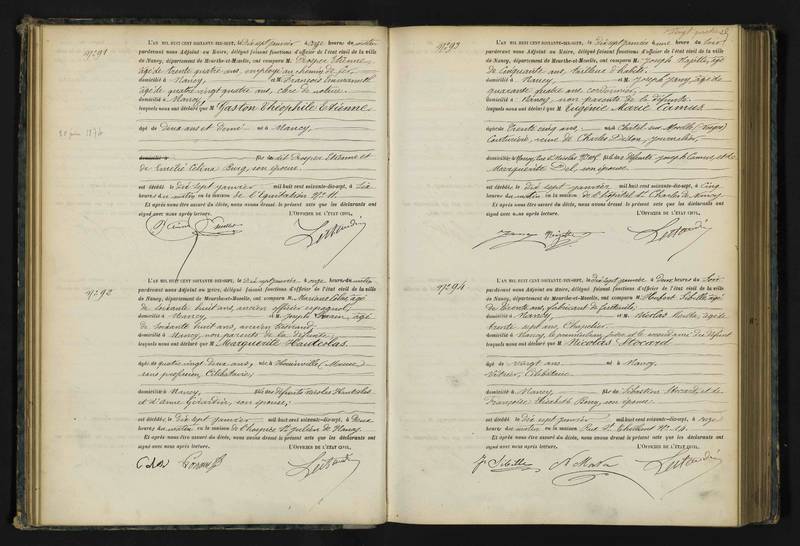 N° 91
L'AN MIL HUIT CENT SOIXANTE-DIX-SEPT, le dix sept janvier à onze heures du matin
pardevant nous Adjoint au Maire, délégué faisant fonctions d'officier de l'état civil de la ville
de Nancy, département de Meurthe-et-Moselle, ont comparu M. Prosper Etienne,
âgé de trente quatre ans, employé au chemin de fer,
domicilié à Nancy, et M. François
âgé de quatre vingt quatre ans, clerc de notaire,
domicilié à Nancy,
lesquels nous ont déclaré que M. Gaston Théophile Etienne
âgé de deux ans et demi né à Nancy,
domicilié à fils de dit Prosper Etienne et
de Emélie Célina Burg, son épouse
est décédé, le dix sept janvier mil huit cent soixante-dix-sept, à six
heures du matin en la maison de l'Equitation N° 11.
Et après nous être assuré du décès, nous avons dressé le présent acte que les déclarants ont
signé avec nous après lecture. L'OFFICIER DE L'ÉTAT CIVIL,
N° 92
L'AN MIL HUIT CENT SOIXANTE-DIX-SEPT, le dix sept janvier à onze heures du matin
pardevant nous Adjoint au Maire, délégué faisant fonctions d'officier de l'état civil de la ville
de Nancy, département de Meurthe-et-Moselle, ont comparu M. âgé
de soixante huit ans, ancien officier espagnol,
domicilié à Nancy et M. Joseph âgé
de soixante huit ans, ancien
domicilié à Nancy, non parents de la défunte,
lesquels nous ont déclaré que M. Marguerite Hautcolas
âgée de quatre vingt deux ans, née à (Meuse)
sans profession, Célibataire,
domiciliée à Nancy, fille des défunts Nicolas Hautcolas
et d'Anne Girardin, son épouse,
est décédée, le dix sept janvier mil huit cent soixante-dix-sept, à deux
heures du matin en la maison de l'hospice St Julien de Nancy.
Et après nous être assuré du décès, nous avons dressé le présent acte que les déclarants ont
signé avec nous après lecture. L'OFFICIER DE L'ÉTAT CIVIL,
N° 93
L'AN MIL HUIT CENT SOIXANTE-DIX-SEPT, le dix sept janvier à une heure du soir
pardevant nous Adjoint au Maire, délégué faisant fonctions d'officier de l'état civil de la ville
de Nancy, département de Meurthe-et-Moselle, ont comparu M. Joseph âgé
de cinquante ans, tailleur d'habits,
domicilié à Nancy, et M. Joseph âgé de
quarante quatre ans, cordonnier,
domicilié à Nancy, non parents de la défunte
lesquels nous ont déclaré que M. Eugénie Marie Camus
âgée de trente cinq ans, née à Châtel sur Moselle (Vosges)
Couturière, veuve de Charles journalier,
domiciliée à Nancy, rue St Nicolas fille des défunts Joseph Camus, et de
Marguerite son épouse
est décédée, le dix sept janvier mil huit cent soixante-dix-sept, à cinq
heures du matin en la maison de l'hôpital St Charles de Nancy
Et après nous être assuré du décès, nous avons dressé le présent acte que les déclarants ont
signé avec nous après lecture. L'OFFICIER DE L'ÉTAT CIVIL,
N° 94
L'AN MIL HUIT CENT SOIXANTE-DIX-SEPT, le dix sept janvier à deux heures du soir
pardevant nous Adjoint au Maire, délégué faisant fonctions d'officier de l'état civil de la ville
de Nancy, département de Meurthe-et-Moselle, ont comparu M. Hubert Sibille âgé
de trente ans, fabricant de
domicilié à Nancy et M. Nicolas âgé de
trente sept ans, Chapelier
domicilié à Nancy, le premier beau frère et le second ami du défunt
lesquels nous ont déclaré que M. Nicolas Mocard
âgé de vingt ans né à Nancy,
Vitrier, Célibataire
domicilié à Nancy fils de Sébastien Mocard, et de
Françoise Elisabeth son épouse
est décédé, le dix sept janvier mil huit cent soixante-dix-sept, à onze
heures du matin en la maison Rue St N° 14
Et après nous être assuré du décès, nous avons dressé le présent acte que les déclarants ont
signé avec nous après lecture. L'OFFICIER DE L'ÉTAT CIVIL,